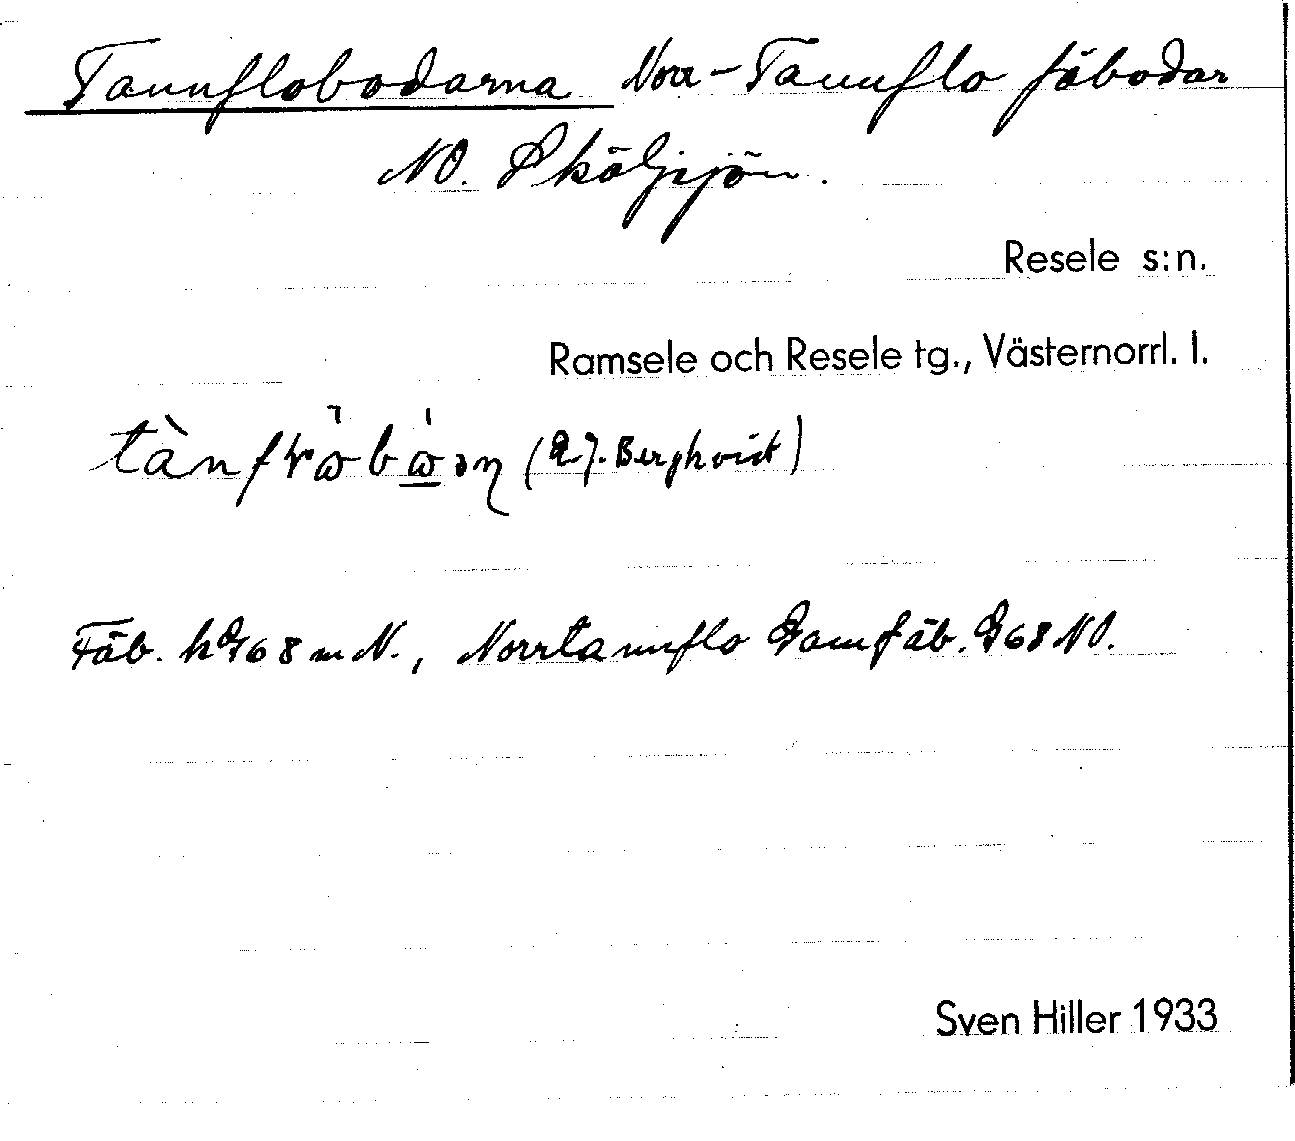 Tannflobodarna Norr-Tannflo fäbodar
NO. Sköljsjön.
Resele s:n.
Ramsele och Resele tg., Västernorrl. l.
(E.J. Berghvist)
Fäb. h 768 m N., Norrtannflo Gamfäb. 968 NO.
Sven Hiller 1933